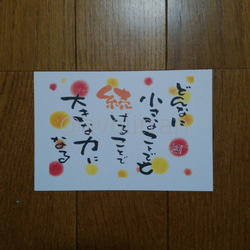 どんなに
小さなことでも
続けることで
大きな力に
なる